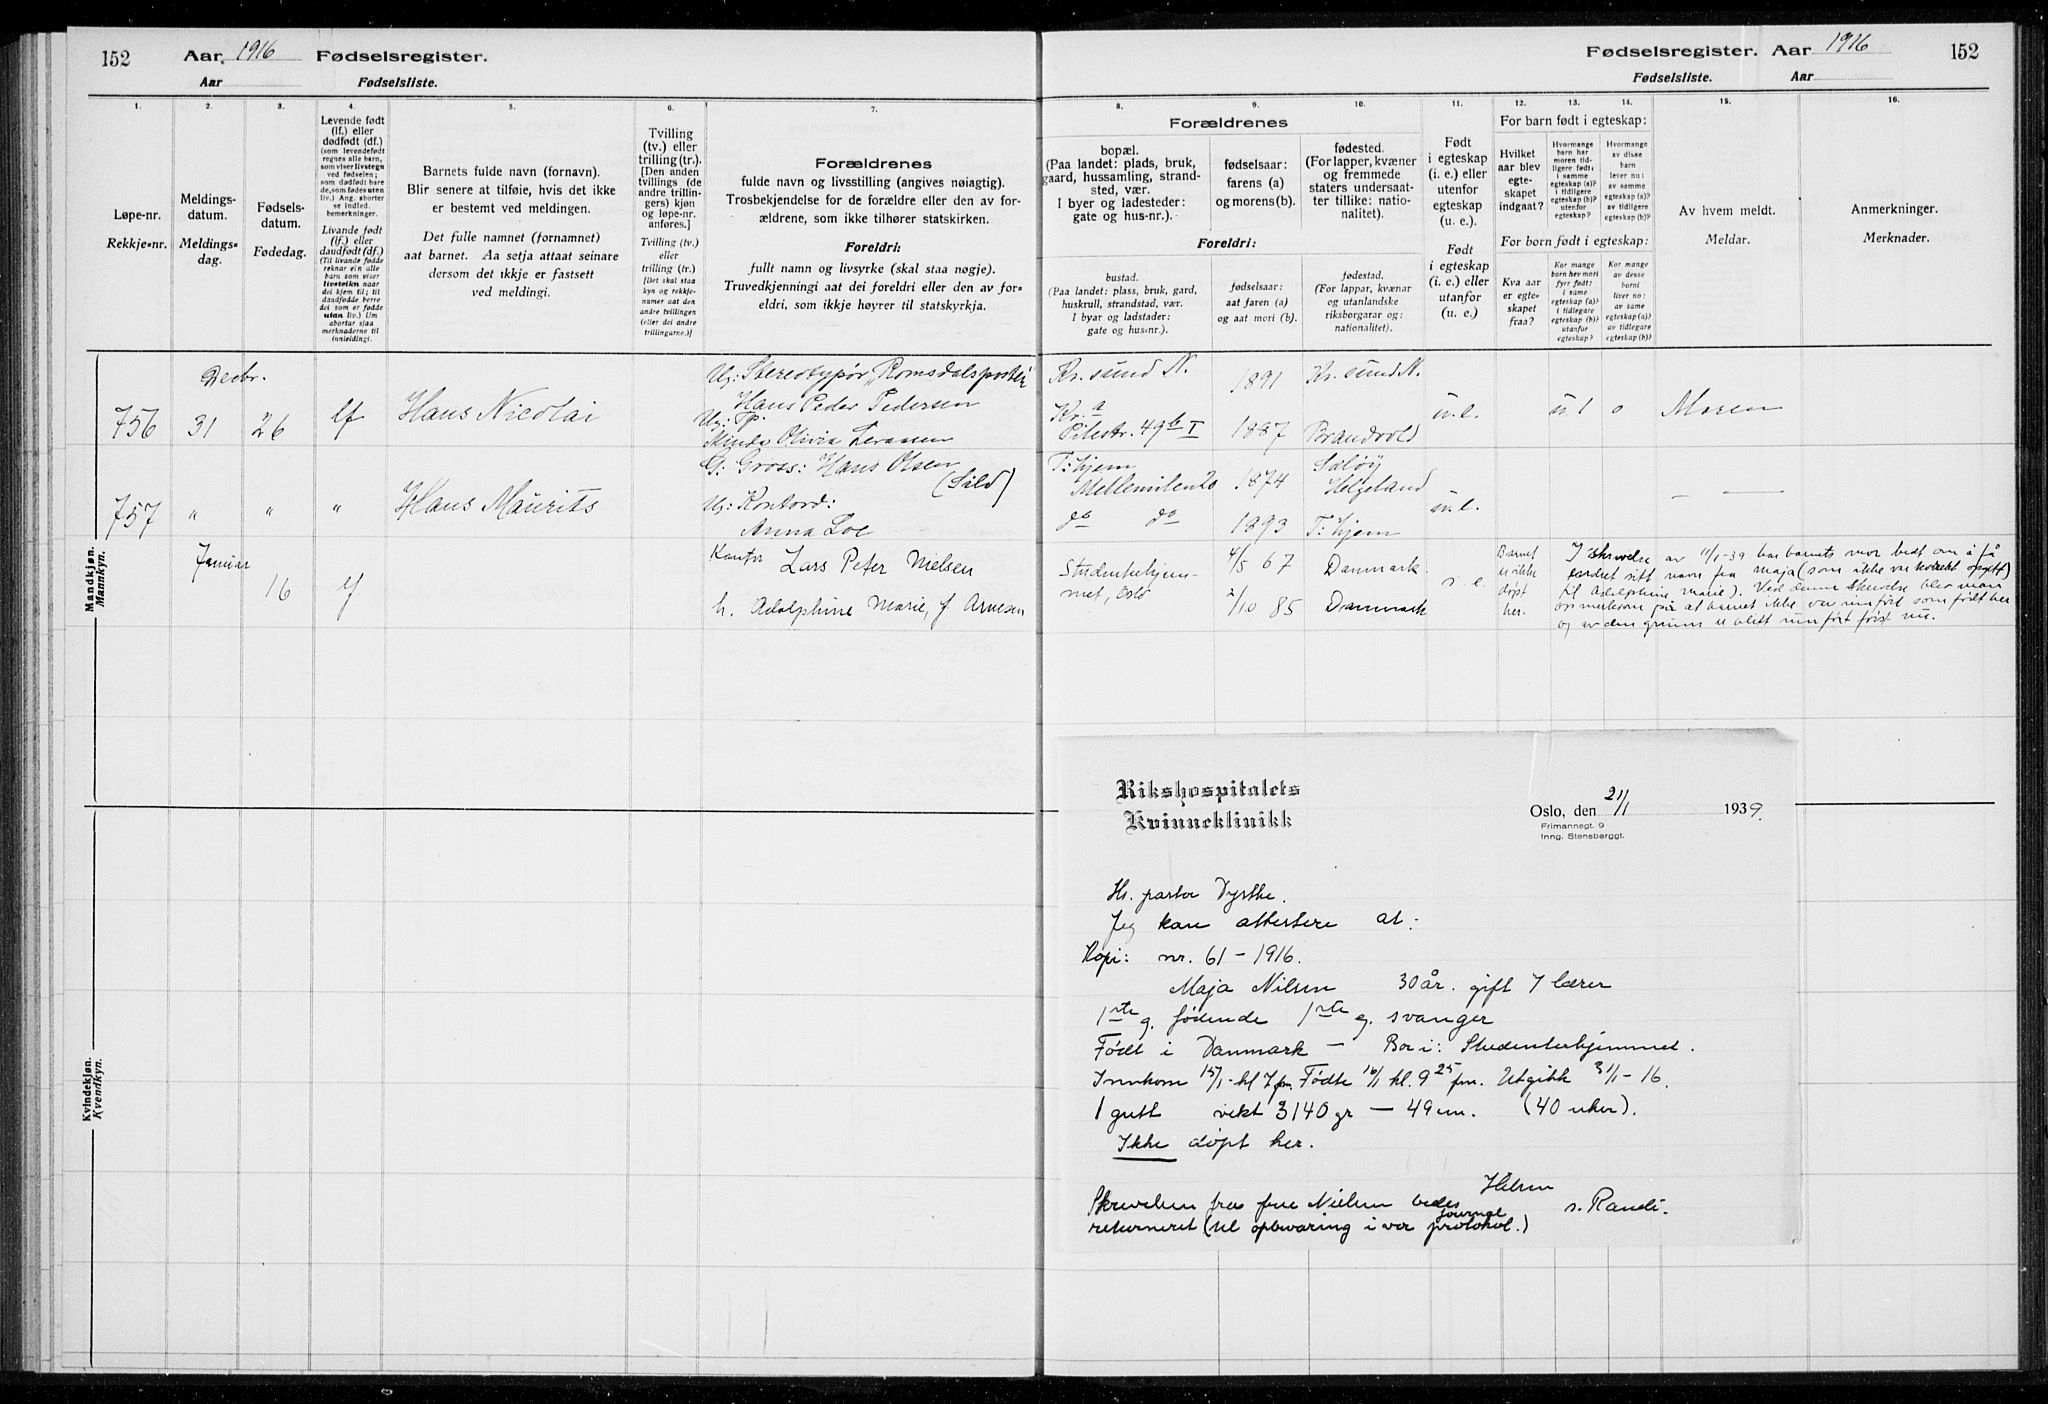 152
Aar 1916 Fødselsregister.
Aar Fødselsliste.
1.
2.
3.
4.
5.
6.
7.
Løpe-nr.
Rekkje-nr.
Meldings-
datum.
Meldings-
dag.
Fødsels-
datum.
Fødedag.
Levende født
(lf.) eller
dødfødt (df.)
(som levendefødt
regnes alle barn,
som viser livstegn
ved fødselen;
som dødfødt bare
de, som fødes uten
liv.) Ang. aborter
se indled.
bemerkninger.
Livande født
(lf.) eller
daudfødt (df.)
(Til livande fødde
reknar ein alle
barn som viser
livsteikn naar
dei kjem til; til
daudfødde berre
dei som er fødde
utan liv.) Um
abortar sjaa
merknaderne til
innleidingi.
Barnets fulde navn (fornavn).
Blir senere at tilføie, hvis det ikke
er bestemt ved meldingen.
Det fulle namnet (fornamnet)
aat barnet. Aa setja attaat seinare
dersom det ikkje er fastsett
ved meldingi.
Tvilling
(tv.) eller
trilling (tr.).
[Den anden
tvillings (de
andre trillin-
gers) kjøn
og løpe-nr.
anføres.]
Tvilling (tv.)
eller
trilling (tr.)
[Det skal staa
kyn og rekkje-
numer aat den
andre tvillingen
(eller dei andre
trillingarne.)]
Forældrenes
fulde navn og livsstilling (angives nøiagtig).
Trosbekjendelse for de forældre eller den av for-
ældrene, som ikke tilhører statskirken.
Foreldri:
fullt namn og livsyrke (skal staa nøgje).
Truvedkjenningi aat dei foreldri eller den av for-
eldri, som ikkje høyrer til statskyrkja.
Mandkjøn.
Mannkyn.
Kvindekjøn.
Kvendkyn.
Decbr.
756 31 26 lf Hans Nicolai
Ug: Stereotypør „Romsdalsposten"
Hans Peder Pedersen
Ug: Tp.
Olivia
757 " " " Hans Maurits
G: Gross: Hans Olsen
(Sild)
Ug: Kontord:
Anna Loe
Januar
16 lf
Kantor Lars Peter Nielsen
h. Adolphine Marie, f. Arnesen
Fødselsregister. Aar 1916
152
Fødselsliste. Aar
8.
9.
10.
11.
12.
13.
14.
15.
16.
Forældrenes
bopæl.
(Paa landet: plads, bruk,
gaard, hussamling, strand-
sted, vær.
I byer og ladesteder:
gate og hus-nr.).
fødselsaar:
farens (a)
og morens (b).
fødested.
(For lapper, kvæner
og fremmede
staters undersaat-
ter tillike: natio-
nalitet).
Foreldri:
bustad.
(Paa landet: plass, bruk, gard,
huskrull, strandstad, vær.
I byar og ladstader:
gate og hus-nr.).
fødselsaar:
aat faren (a)
og aat mori (b).
fødestad.
(For lappar, kvænar
og utanlandske
riksborgarar og:
nationalitet).
Født
i egteskap
(i. e.) eller
utenfor
egteskap
(u. e.)
Født
i egteskap
(i. e.) eller
utanfor
(u. e.)
For barn født i egteskap:
Hvilket
aar blev
egte-
skapet
indgaat?
Hvormange
barn har
moren tid-
ligere født:
i samme
egteskap (a)?
i tidligere
egteskap (b)?
utenfor
egteskap?
Hvormange
av disse
barn
lever nu:
av samme
egteskap (a)?
av tidligere
egteskap (b)?
For born født i egteskap:
Kva aar
er egte-
skapet
fraa?
Kor mange
born hev mori
fyrr født:
i same
egteskap (a)?
i tidlegare
egteskap (b)?
utanfor
egteskap?
Kor mange
av desse
borni
liver no:
av same
egteskap (a)?
av tidlegare
egteskap (b)?
Av hvem meldt.
Meldar.
Anmerkninger.
Merknader.
Kr.sund N. 1891 Kr.sund N.
Kr.a
Pilestr. 49b I 1887 Brandvold u.e. u 1 0 Moren
T:hjem
Mellemilen 20 1874
Helgeland u.e. – —
do do 1893 T:hjem
Studenterhjem-
met, Oslo
4/5 67 Danmark
2/10 85 Danmark
i e.
Barnet
er ikke
døpt
her.
I skrivelse av 11/1-39 har barnets mor bedt om å få
endret sitt navn fra Maja (som ikke var korrekt opgitt)
til Adolphine Marie). Ved denne skrivelse blev man
opmerksom på at barnet ikke var innført som født her
og av den grunn er blitt innført først nu.
Rikshospitalets
Kvinneklinikk
Oslo, den 21/1 1939.
Frimannsgt. 9
Inng. Stensberggt.
Hr. pastor
Jeg kan attestere at:
Kopi: nr. 61 – 1916.
Maja Nilsen 30 år. gift lærer
1ste g. fødende 1ste g. svanger
Født i Danmark – Bor i: Studenterhjemmet.
Innkom 15/1 - kl 7 fm. Fødte 16/1 kl. 9 25 fm. Utgikk 31/1 - 16.
1 gutt vekt 3140 gr – 49 cm. (40 uker).
Ikke døpt her.
Hilsen
Skrivelsen fra frue Nielsen bedes s. Randi.
returneret (til opbevaring i vor journal protokol.)